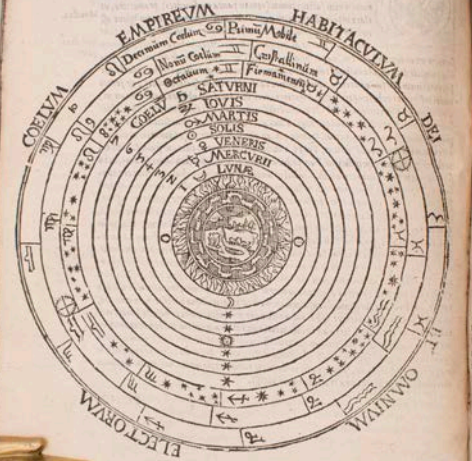 COELVM EMPIREVM HABITACVLVM DEI ET OMNIVM ELECTORVM
Decimum Coelum Primũ Mobile
Nonũ Coelum Cristallinum
Octauum Firmamentũ
COELV SATVRNI
IOVIS
MARTIS
SOLIS
VENERIS
MERCVRII
LVNÆ